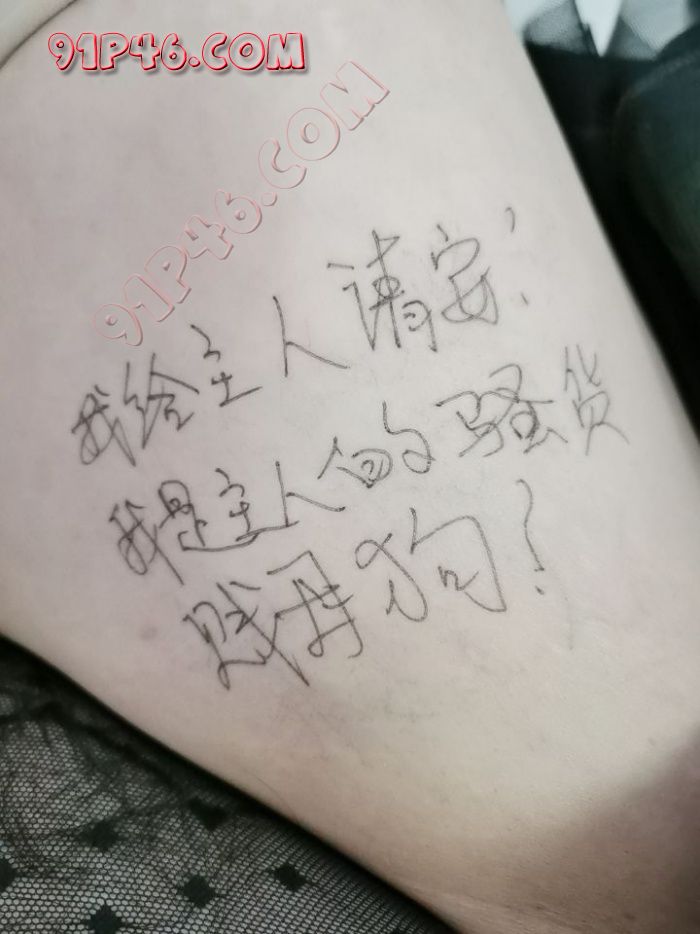 91P46.COM
91P46.COM
我给主人请安!
我是主人的骚货
贱母狗!